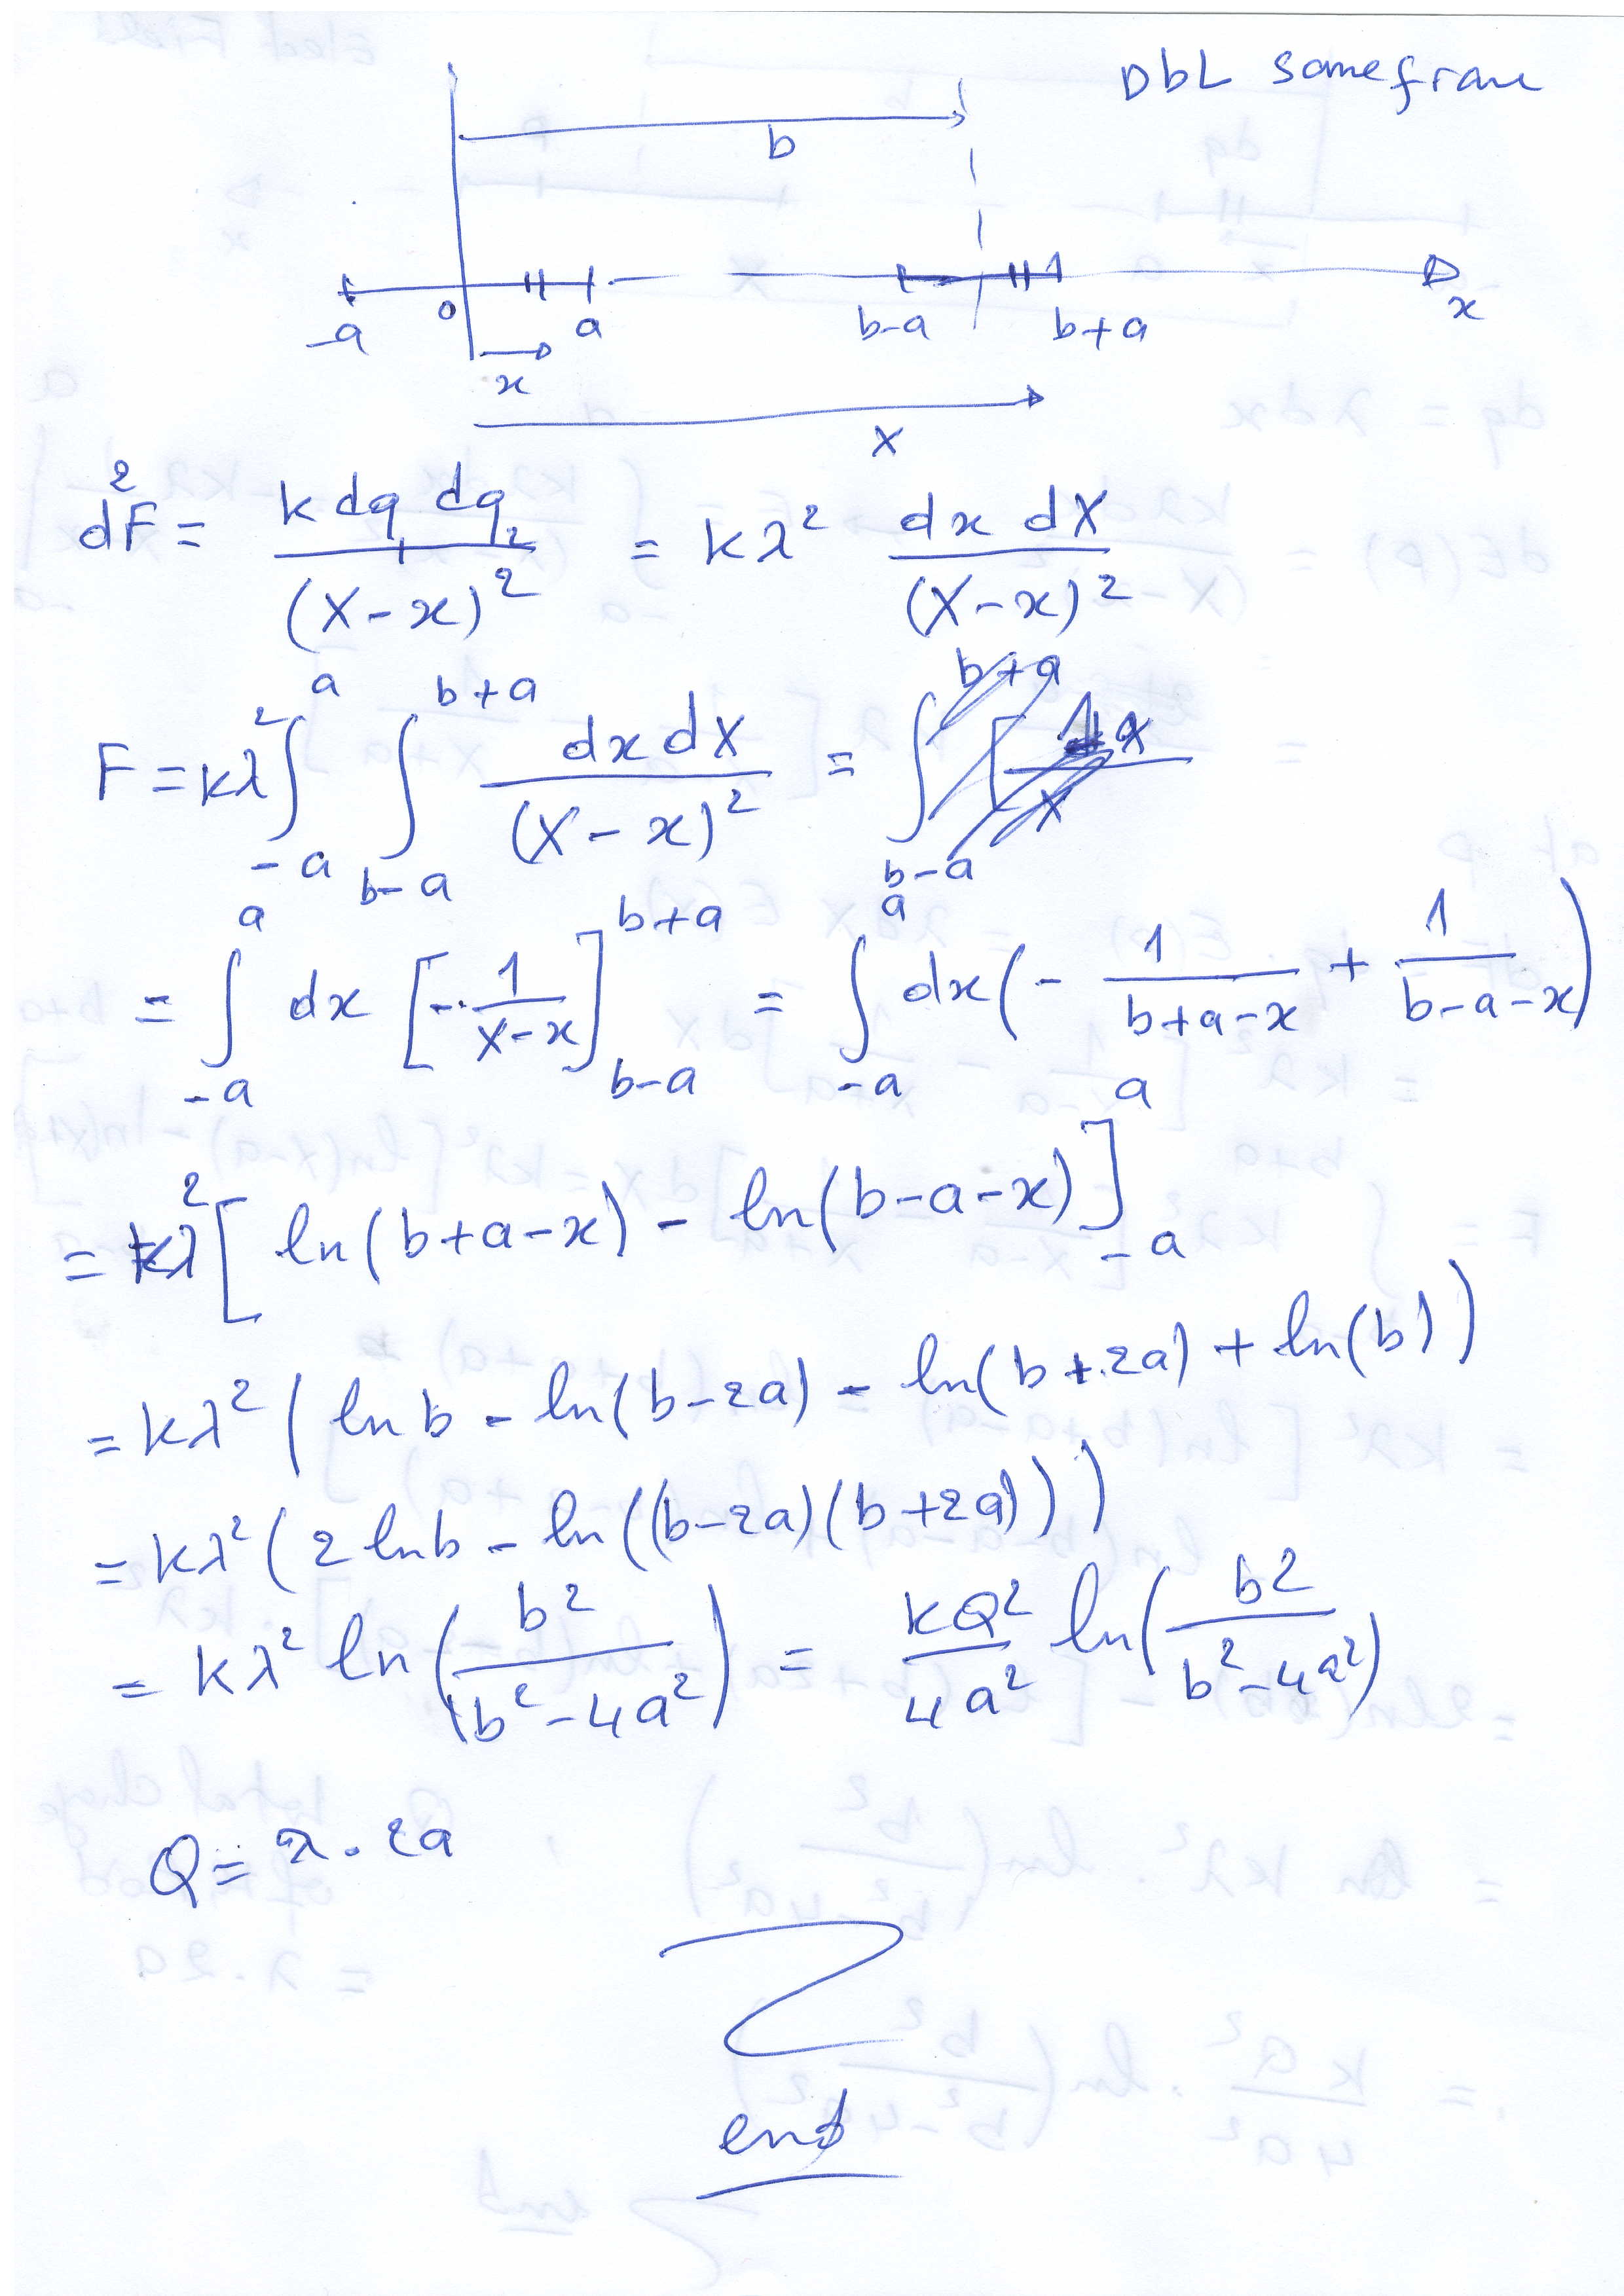 DbL same frame
b
-a 0 a b-a b+a x
x
X
d²F = k dq₁ dq₂ / (X-x)² = kλ² dx dX / (X-x)²
F = kλ² ∫_{-a}^{a} ∫_{b-a}^{b+a} dx dX / (X-x)² = ∫_{b-a}^{b+a} [
= ∫_{-a}^{a} dx [- 1/(X-x)]_{b-a}^{b+a} = ∫_{-a}^{a} dx (- 1/(b+a-x) + 1/(b-a-x))
= kλ² [ ln(b+a-x) - ln(b-a-x) ]_{-a}^{a}
= kλ² ( ln b - ln(b-2a) - ln(b+2a) + ln(b) )
= kλ² ( 2 ln b - ln((b-2a)(b+2a)) )
= kλ² ln( b² / (b²-4a²) ) = kQ²/4a² ln( b² / (b²-4a²) )
Q = λ . 2a
end